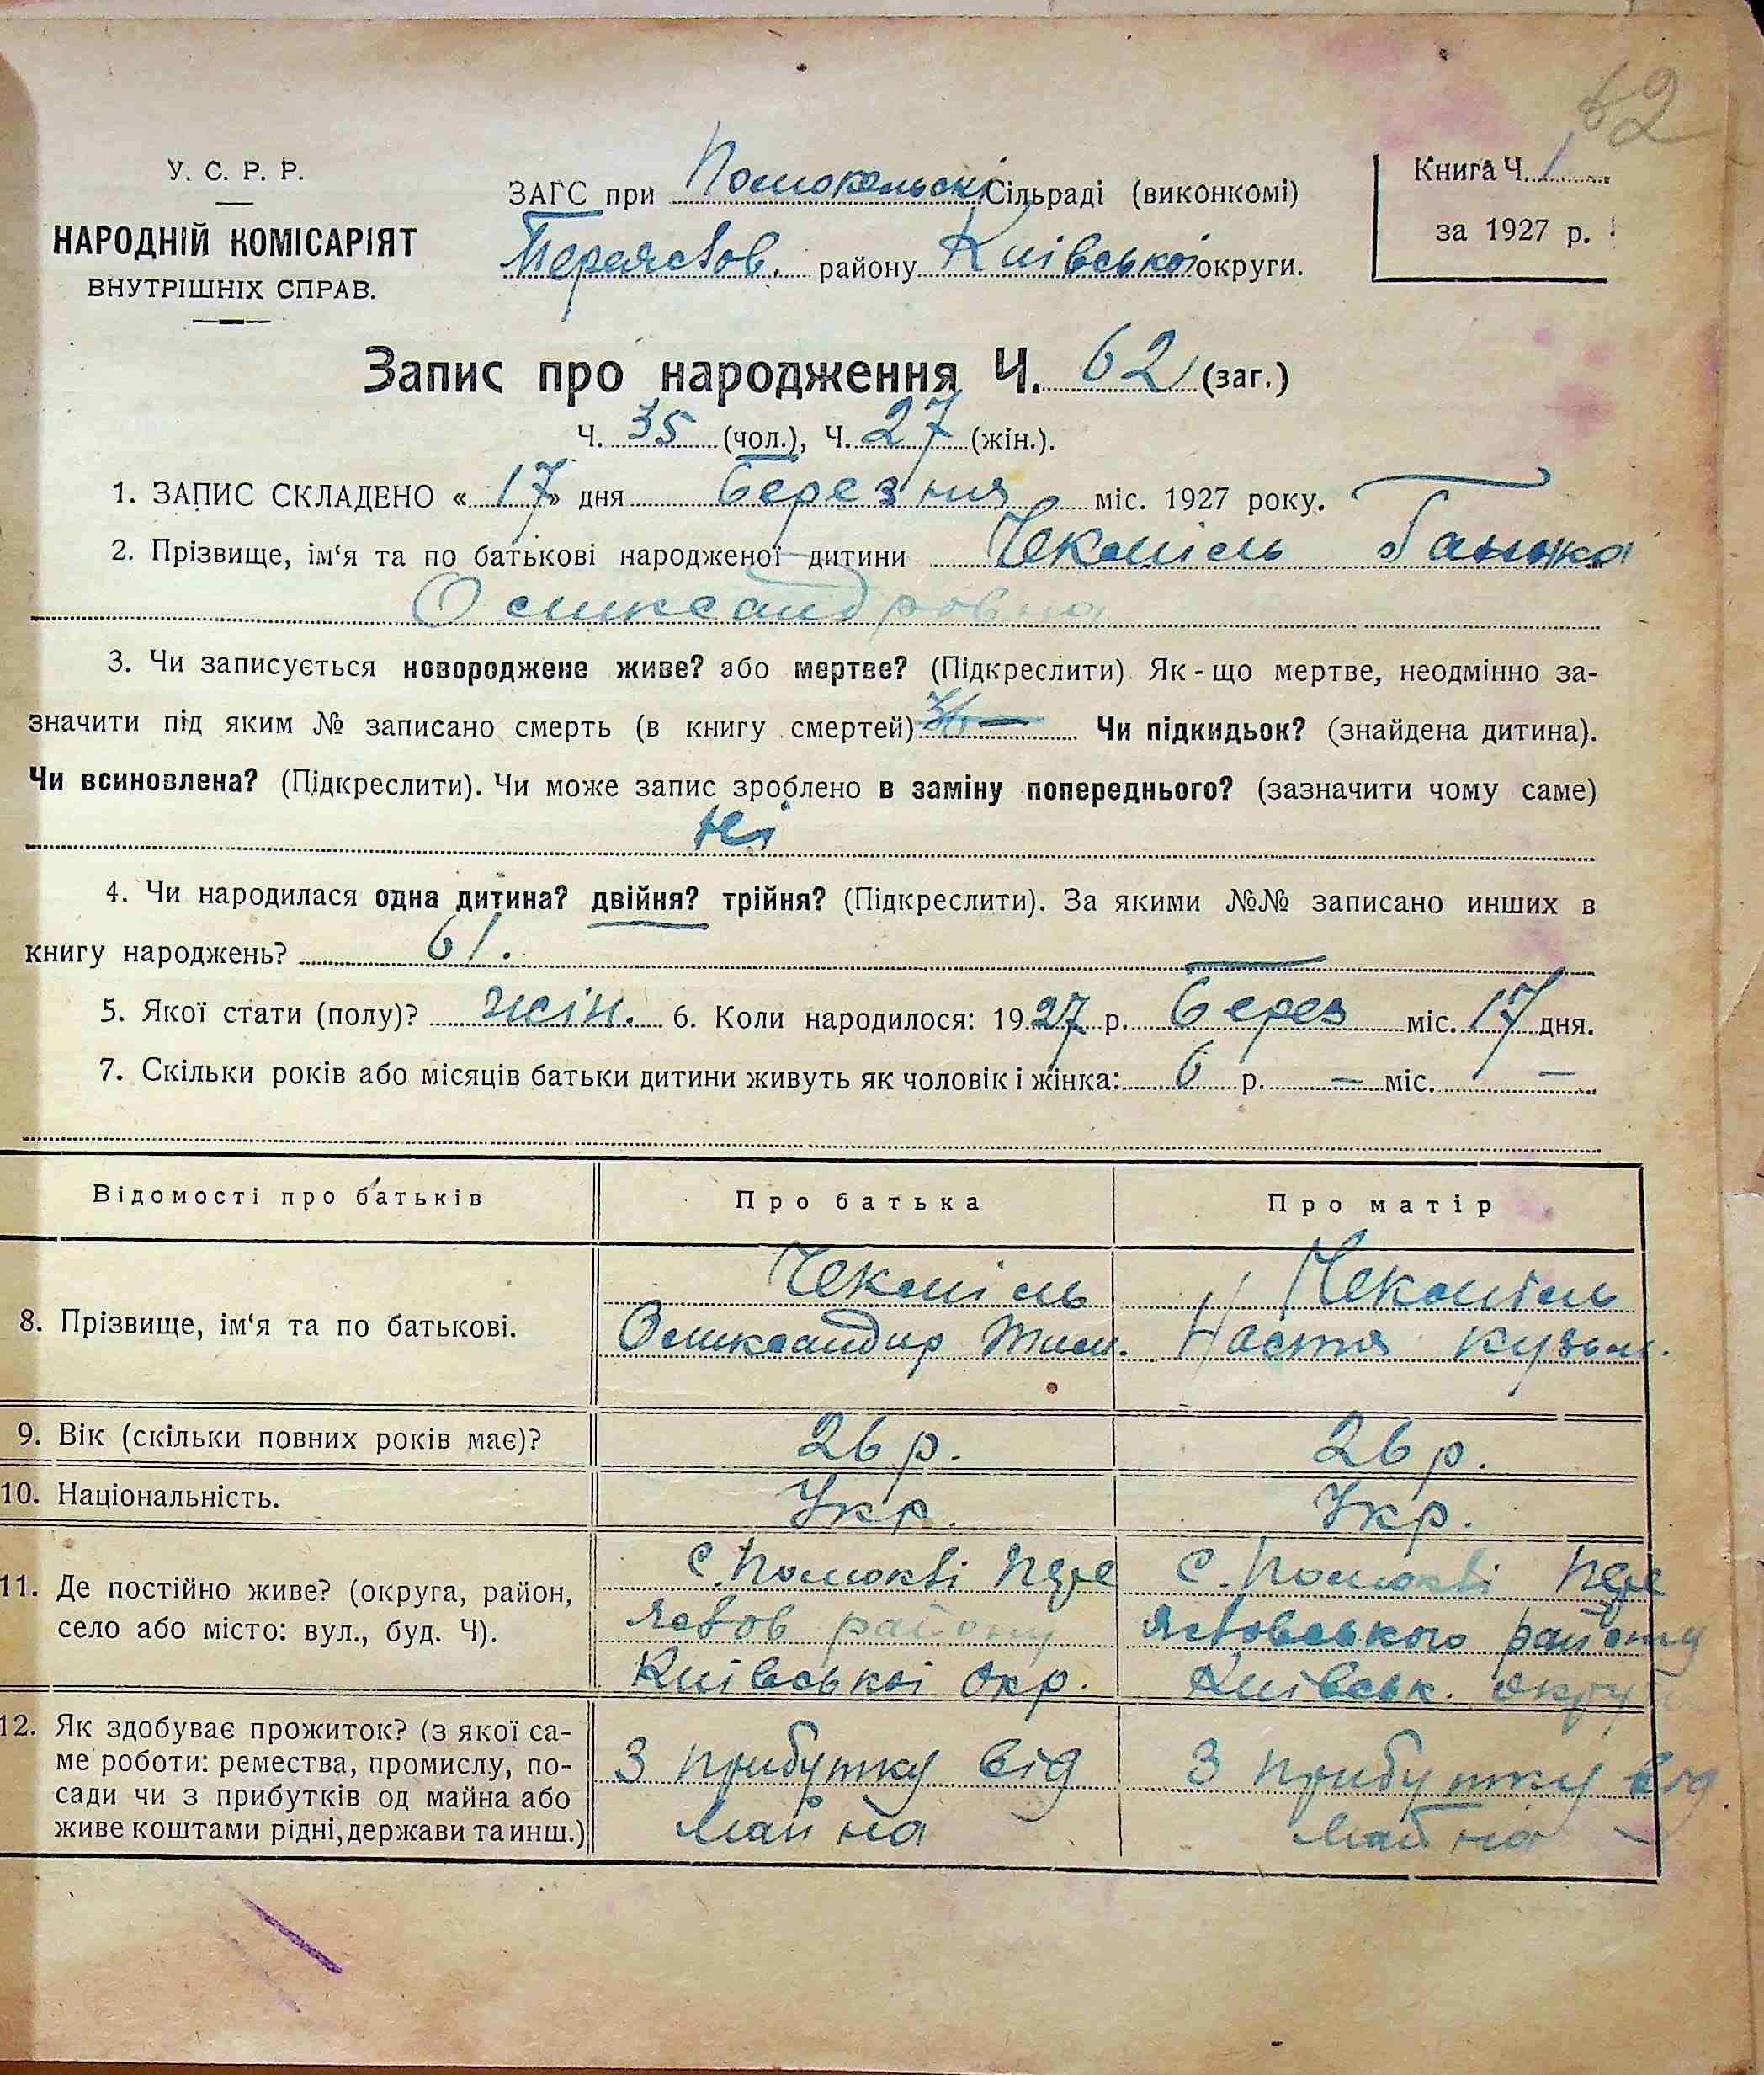 62
У. С. Р. Р.
НАРОДНІЙ КОМІСАРІЯТ
ВНУТРІШНІХ СПРАВ.
ЗАГС при Помокельскі Сільраді (виконкомі)
Переяслов. району Київської округи.
Книга Ч. 1
за 1927 р.
Запис про народження Ч. 62 (заг.)
Ч. 35 (чол.), Ч. 27 (жін.).
1. ЗАПИС СКЛАДЕНО «17» дня березня міс. 1927 року.
2. Прізвище, ім‘я та по батькові народженої дитини Чекміль Ганька
Оликсандровна
3. Чи записується новороджене живе? або мертве? (Підкреслити). Як-що мертве, неодмінно за-
значити під яким № записано смерть (в книгу смертей) Чи підкидьок? (знайдена дитина).
Чи всиновлена? (Підкреслити). Чи може запис зроблено в заміну попереднього? (зазначити чому саме)
Ні
4. Чи народилася одна дитина? двійня? трійня? (Підкреслити). За якими №№ записано инших в
книгу народжень? 61.
5. Якої стати (полу)? жін. 6. Коли народилося: 1927 р. берез міс. 17 дня.
7. Скільки років або місяців батьки дитини живуть як чоловік і жінка: 6 р. — міс. —
Відомості про батьків
Про батька
Про матір
8. Прізвище, ім‘я та по батькові.
Чекміль
Оликсандир Тим.
Чекміль
Настя Кузьм.
9. Вік (скільки повних років має)?
26 р.
26 р.
10. Національність.
Укр.
Укр.
11. Де постійно живе? (округа, район,
село або місто: вул., буд. Ч).
С. Помоклі Пере
яслов району
Київські окр.
С. Помоклі Пере
яславського району
Київськ. округ
12. Як здобуває прожиток? (з якої са-
ме роботи: ремества, промислу, по-
сади чи з прибутків од майна або
живе коштами рідні, держави та инш.)
З прибутку від
майна
З прибутку від
майна